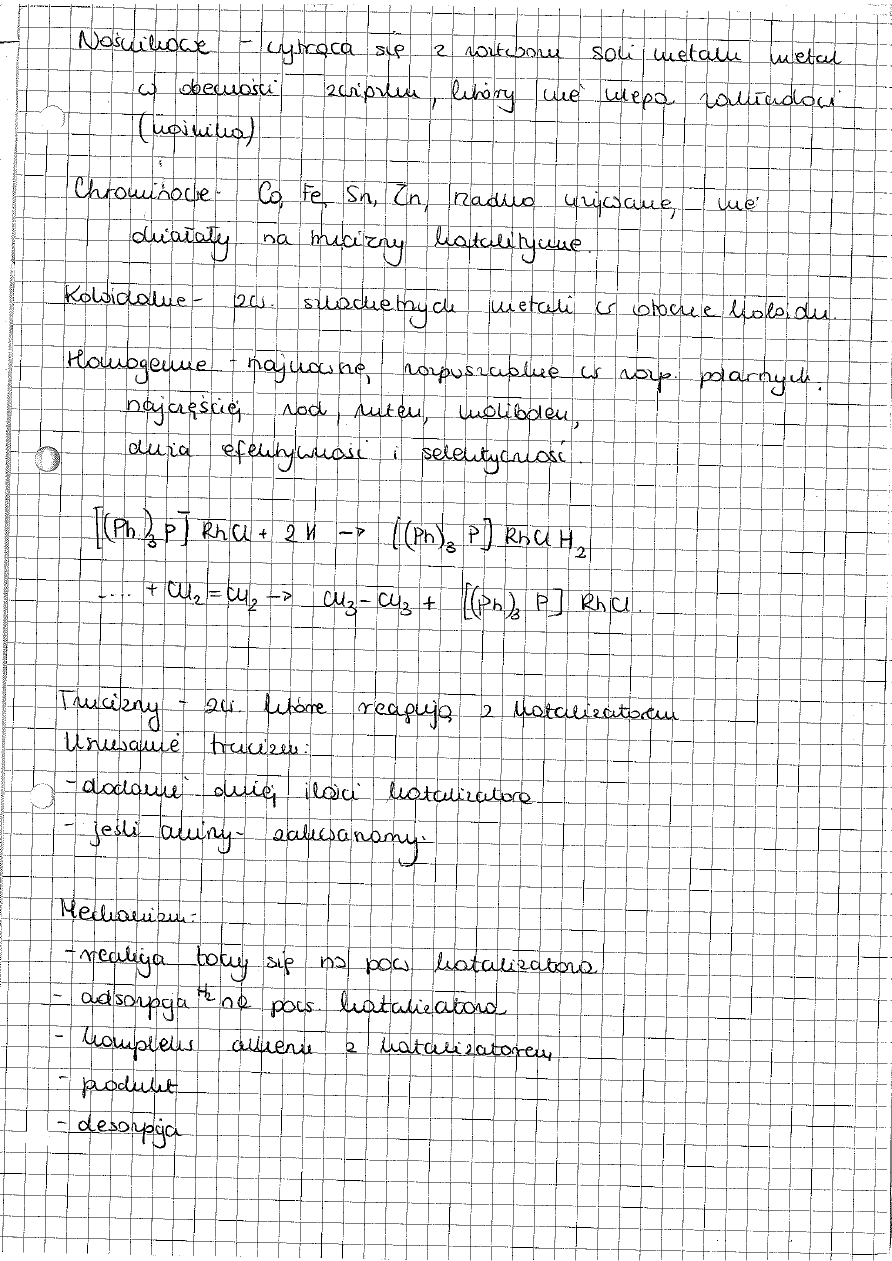 Nośnikowe - wytrąca się z roztworu soli metalu metal
w obecności związku, który nie ulega rozkładowi
(nośnika)
Chrominowe - Co, Fe, Sn, Zn, rzadko używane, nie
działały na trucizny katalityczne.
Koloidalne - zw. szlachetnych metali w otoczce koloidu.
Homogenne - najnowsze, rozpuszczalne w rozp. polarnych.
najczęściej rod, ruten, molibden,
duża efektywność i selektywność.
[(Ph)3 P] RhCl + 2H → [(Ph)3 P] RhCl H2
.... + CH2=CH2 → CH3-CH3 + [(Ph)3 P] RhCl.
Trucizny - zw. które reagują z katalizatorem
Usuwanie trucizn:
- dodanie dużej ilości katalizatora
- jeśli aminy - zakwaszamy.
Mechanizm:
- reakcja toczy się na pow. katalizatora
- adsorpcja H2 na pow. katalizatora
- kompleks alkenu z katalizatorem
- produkt
- desorpcja